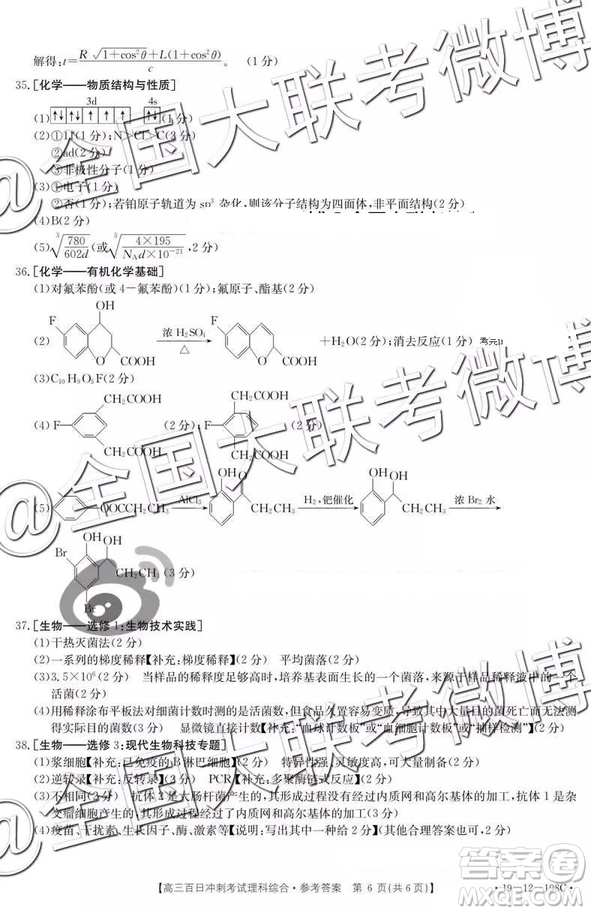 解得:t=R√(1+cos²θ)+L(1+cos²θ)/c。 (1分)
35.[化学——物质结构与性质]
3d 4s
(1)↑↓ ↑ ↑ ↑ ↑ ↑↓(1分)
(2)①11(1分);N>Cl>C(3分)
②ad(2分)
③非极性分子(1分)
(3)①电子(1分)
②否(1分);若铂原子轨道为sp³杂化,则该分子结构为四面体,非平面结构(2分)
(4)B(2分)
(5)³√(780/602d)(或³√(4×195/(N_A d×10⁻²¹)),2分)
36.[化学——有机化学基础]
(1)对氟苯酚(或4-氟苯酚)(1分);氟原子、酯基(2分)
(2) F OH O COOH 浓H₂SO₄ △ F O COOH +H₂O(2分);消去反应(1分)
(3)C₁₀H₉O₄F(2分)
(4) F CH₂COOH CH₂COOH (2分); F CH₂COOH CH₂COOH (2分)
(5) OOCCH₂CH₃ AlCl₃ OH O CH₂CH₃ H₂,钯催化 OH OH CH₂CH₃ 浓Br₂水
Br OH OH CH₂CH₃ Br (3分)
37.[生物——选修1:生物技术实践]
(1)干热灭菌法(2分)
(2)一系列的梯度稀释【补充:梯度稀释】(2分) 平均菌落(2分)
(3)3.5×10⁶(2分) 当样品的稀释度足够高时,培养基表面生长的一个菌落,来源于样品稀释液中的一个
活菌(2分)
(4)用稀释涂布平板法对细菌计数的时间较长,但食品因含水量、营养等容易变质,导致最终的菌落死亡而无法测
得实际目的菌数(3分) 显微镜直接计数【补充:“血球计数板”或“血细胞计数板”或“抽样检测”】(2分)
38.[生物——选修3:现代生物科技专题]
(1)浆细胞【补充:已免疫的B淋巴细胞】(2分) 特异性强、灵敏度高,可大量制备(2分)
(2)逆转录【补充:反转录】(2分) PCR【补充:多聚酶链式反应】(2分)
(3)不相同(2分) 抗体2是大肠杆菌产生的,其形成过程没有经过内质网和高尔基体的加工,而抗体1是杂
交瘤细胞产生的,其形成过程经过了内质网和高尔基体的加工(3分)
(4)疫苗、干扰素、生长因子、酶、激素等【说明:写出其中一种给2分】(其他合理答案也可,2分)
【高三百日冲刺考试理科综合·参考答案 第6页(共6页)】
·19-12-198C·
@全国大联考微博
@全国大联考微博